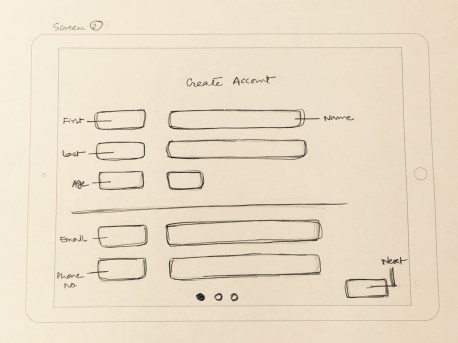 Screen 2
Create Account
First
Name
Last
Age
Email
Phone
no.
Next